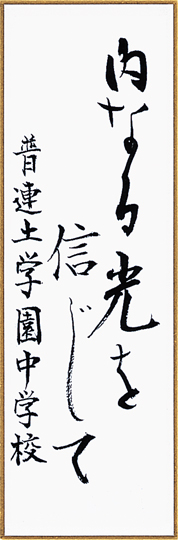 内なる光を
信じて
普連土学園中学校